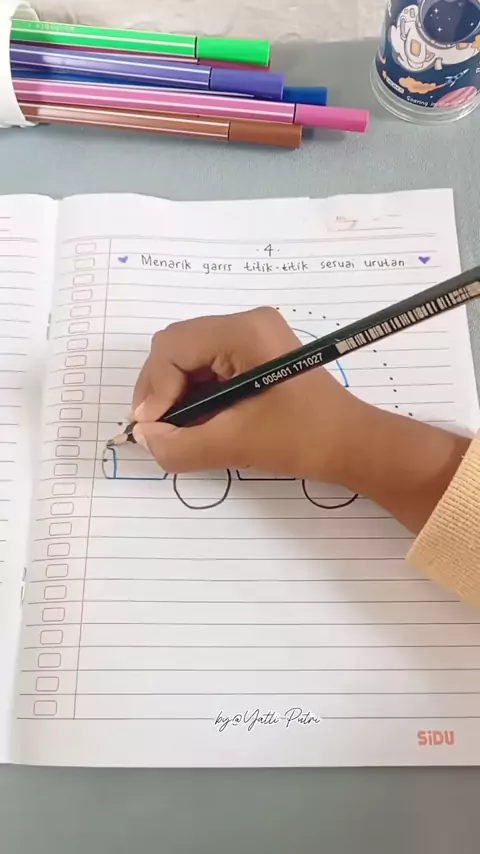 · 4 ·
Menarik garis titik-titik sesuai urutan
4 005401 171027
by@Yatli Putri
SiDU